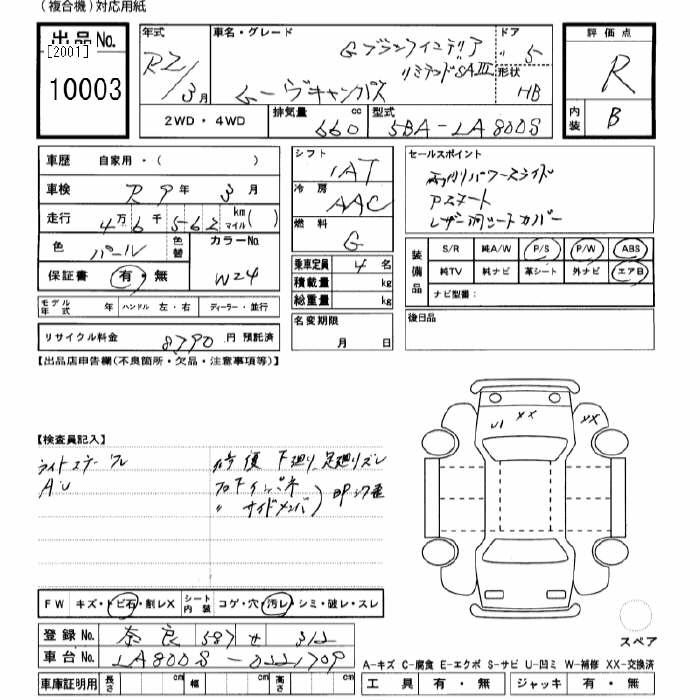 (複合機)対応用紙
出品No. [2001] 10003
年式 R2/3月
車名・グレード Gブラックインテリア リミテッドSAⅢ ムーヴキャンバス
ドア 5
形状 HB
2WD・4WD
排気量 660 cc
型式 5BA-LA800S
評価点 R
内装 B
車歴 自家用・( )
車検 R9年3月
走行 4万6千562 km マイル( )
色 パール 色替 カラーNo. W24
保証書 有・無
モデル年式 年 ハンドル 左・右 ディーラー・並行
リサイクル料金 8790 円 預託済
シフト IAT
冷房 AAC
燃料 G
乗車定員 4名
積載量 kg
総重量 kg
名変期限 月 日
セールスポイント
両側パワースライド
Pスタート
レザー調シートカバー
装備品 S/R 純A/W P/S P/W ABS
純TV 純ナビ 革シート 外ナビ エアB
ナビ型番:
後日品
【出品店申告欄(不良箇所・欠品・注意事項等)】
【検査員記入】
ライトステーワレ 修復 下廻り足廻りズレ
AU フロアインパネ
〃 サイドメンバ
U1 XX XX
FW キズ・トビ石・割レX シート内装 コゲ・穴・汚レ・シミ・破レ・スレ
登録No. 奈良 587 せ 312
車台No. LA800S-0221709
車庫証明用 長さ cm 幅 cm 高さ cm
スペア
A-キズ C-腐食 E-エクボ S-サビ U-凹ミ W-補修 XX-交換済
工具 有・無 ジャッキ 有・無